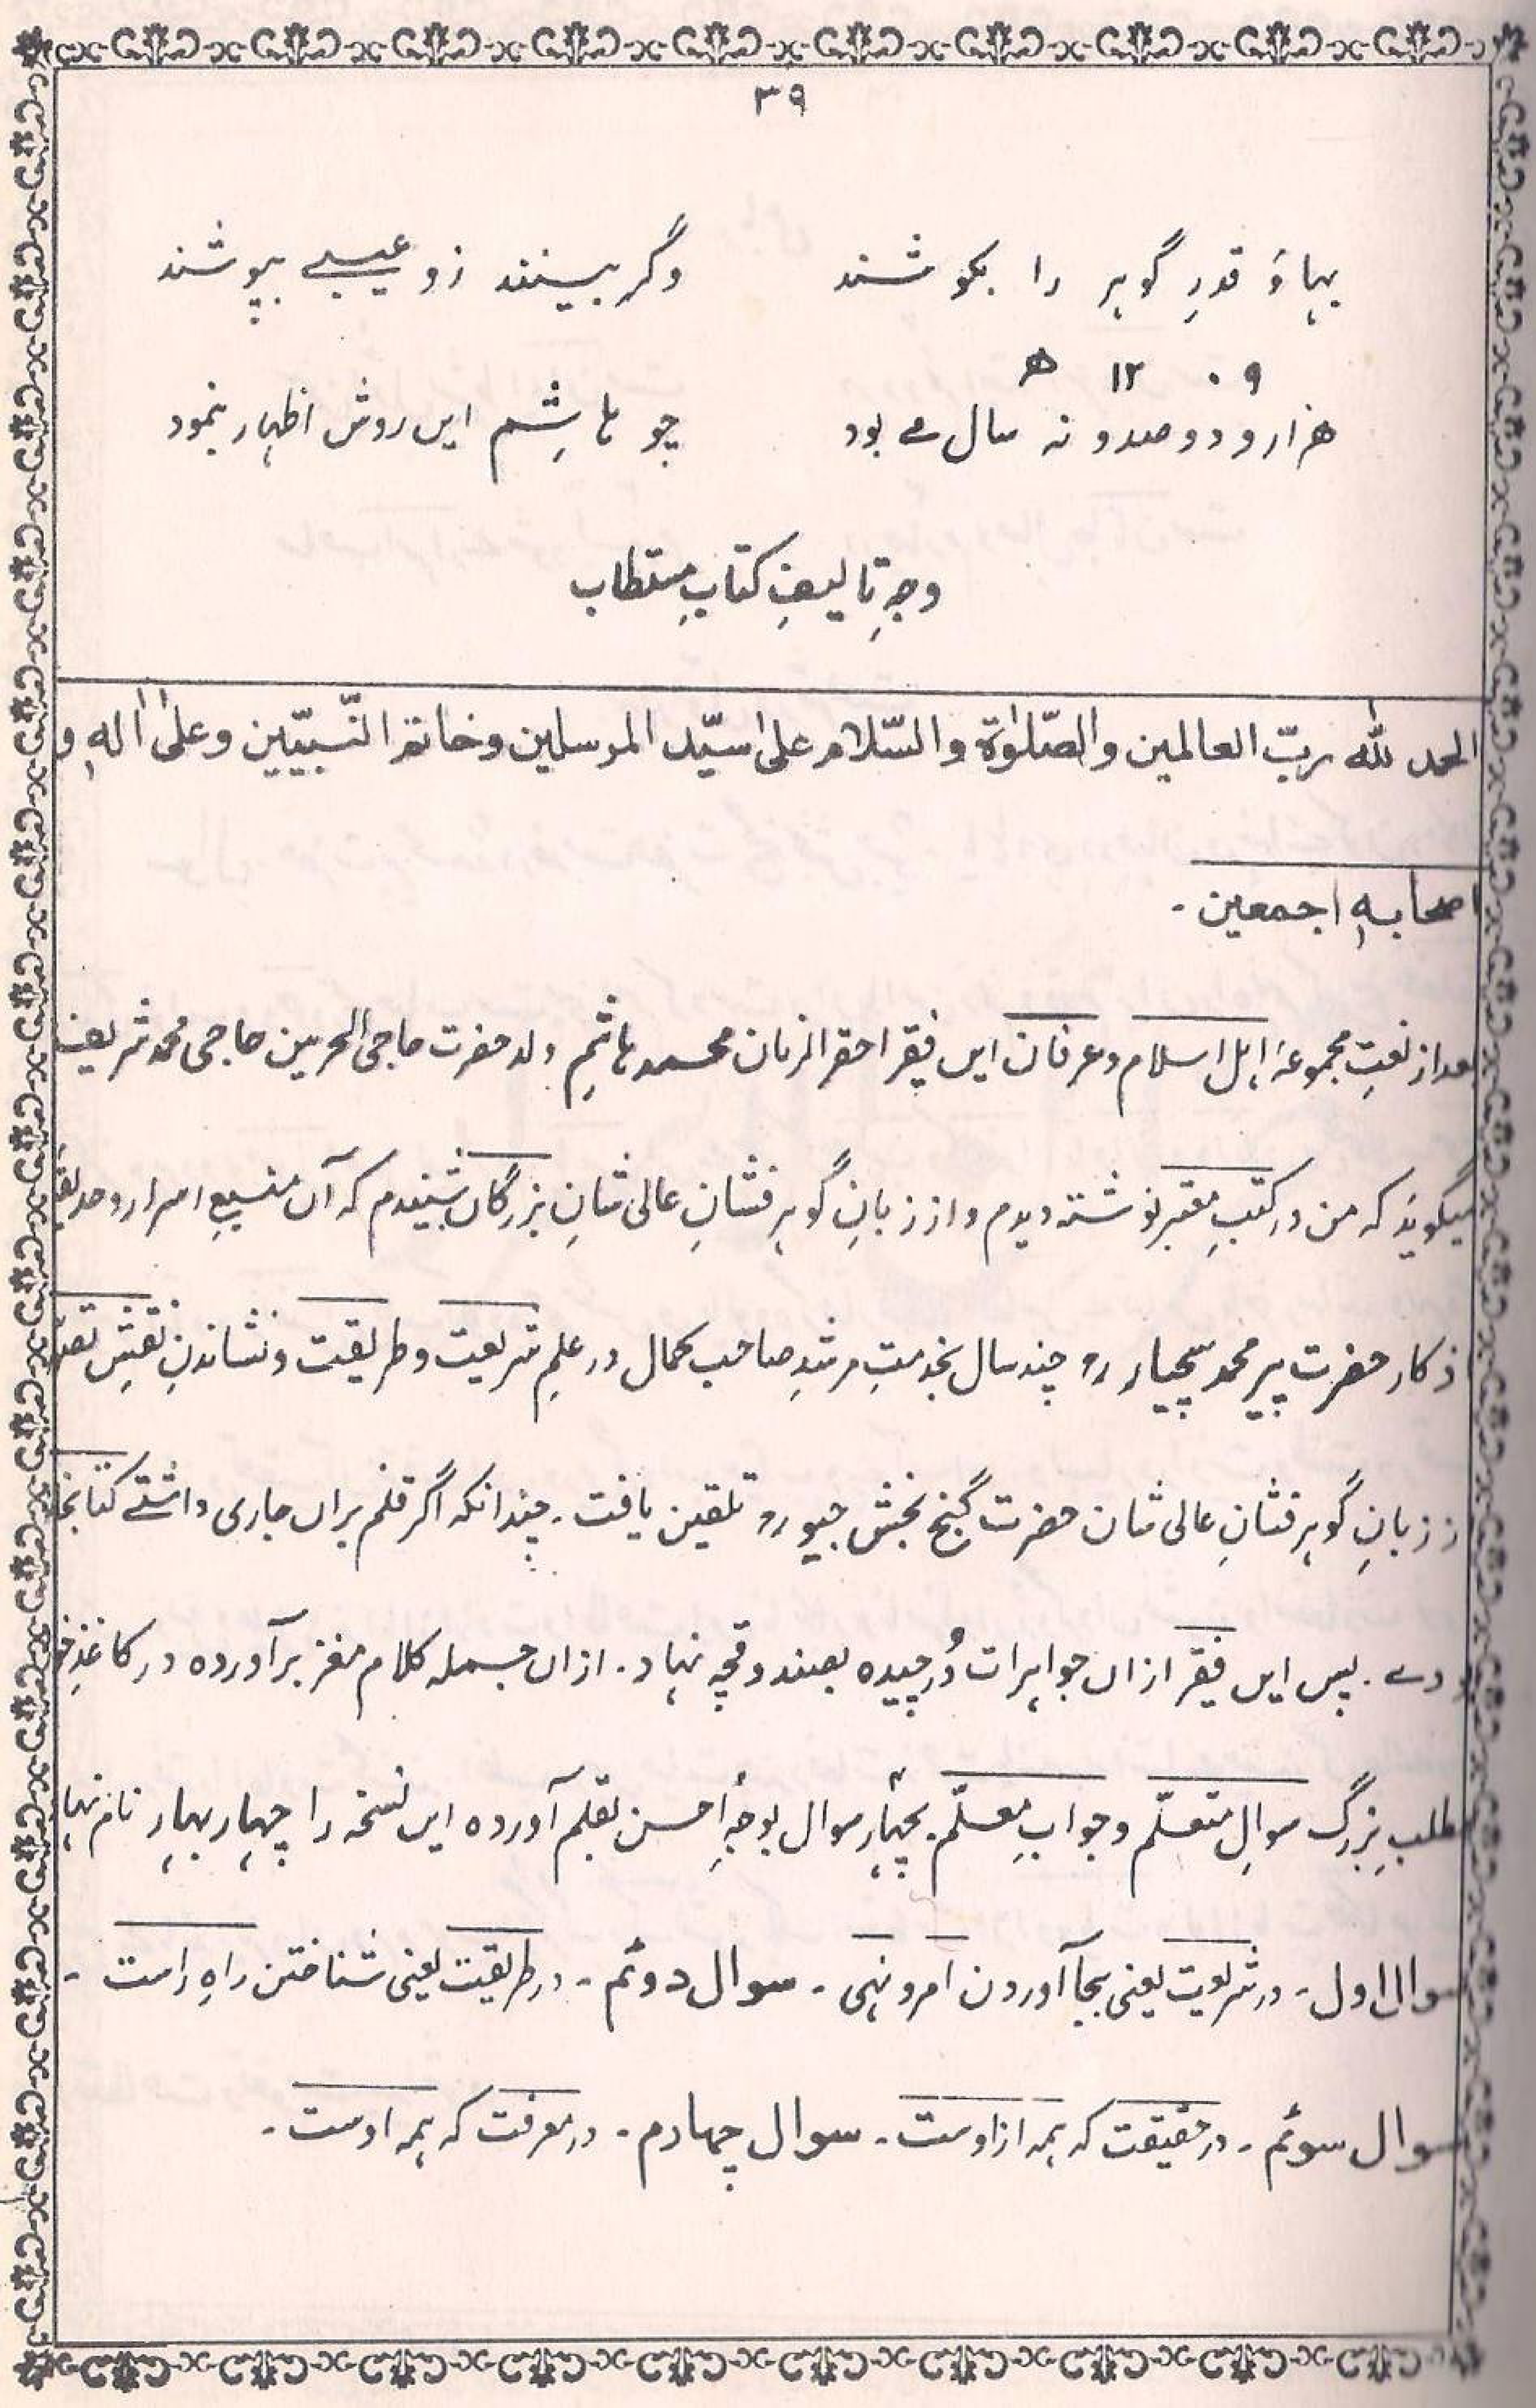 ۳۹
بہاۂ قدرِ گوہر را بکوشند وگر بینند زو عیبے بپوشند
۱۲۰۹ ھ
ھزار و دو صد و نہ سال مے بود چو ہاشِم ایں روش اظہار بنمود
وجہِ تالیفِ کتابِ مستطاب
الحمد للّٰہ ربّ العالمین والصّلوٰۃ والسّلام علیٰ سیّد المرسلین وخاتم النّبییّین وعلیٰ اٰلہٖ و
اصحابہٖ اجمعین ۔
بعد از نعتِ مجموعۂ اہل اسلام و عرفان ایں فقیر احقر الزمان محمد ہاشِم ولد حضرت حاجی الحرمین حاجی محمد شریف
میگوید کہ من در کتبِ معتبر نوشتہ دیدم و از زبانِ گوہر فشانِ عالی شانِ بزرگاں شنیدم کہ آں منبعِ اسرار و
ذکار حضرت پیر محمد سچیار رح چند سال بخدمتِ مرشدِ صاحب کمال در علمِ شریعت و طریقت و نشاندنِ نقشِ
ز زبانِ گوہر فشانِ عالی شان حضرت گنج بخش جیو رح تلقین یافت ۔ چندانکہ اگر قلم براں جاری داشتے
دے ۔ پس ایں فقیر ازاں جواہرات دُرچیدہ بصندوقچہ نہاد ۔ ازاں جملہ کلام مغز برآوردہ در کاغذِ
طلبِ بزرگ سوالِ متعلّم و جوابِ معلّم بچہار سوال بوجہِ اَحسن بقلم آوردہ ایں نسخہ را چہار بہار نام نہا
سوال اول ۔ در شریعت یعنی بجا آوردن امر و نہی ۔ سوال دوئم ۔ در طریقت یعنی شناختن راہِ راست ۔
سوال سوئم ۔ در حقیقت کہ ہمہ از اوست ۔ سوال چہارم ۔ در معرفت کہ ہمہ اوست ۔